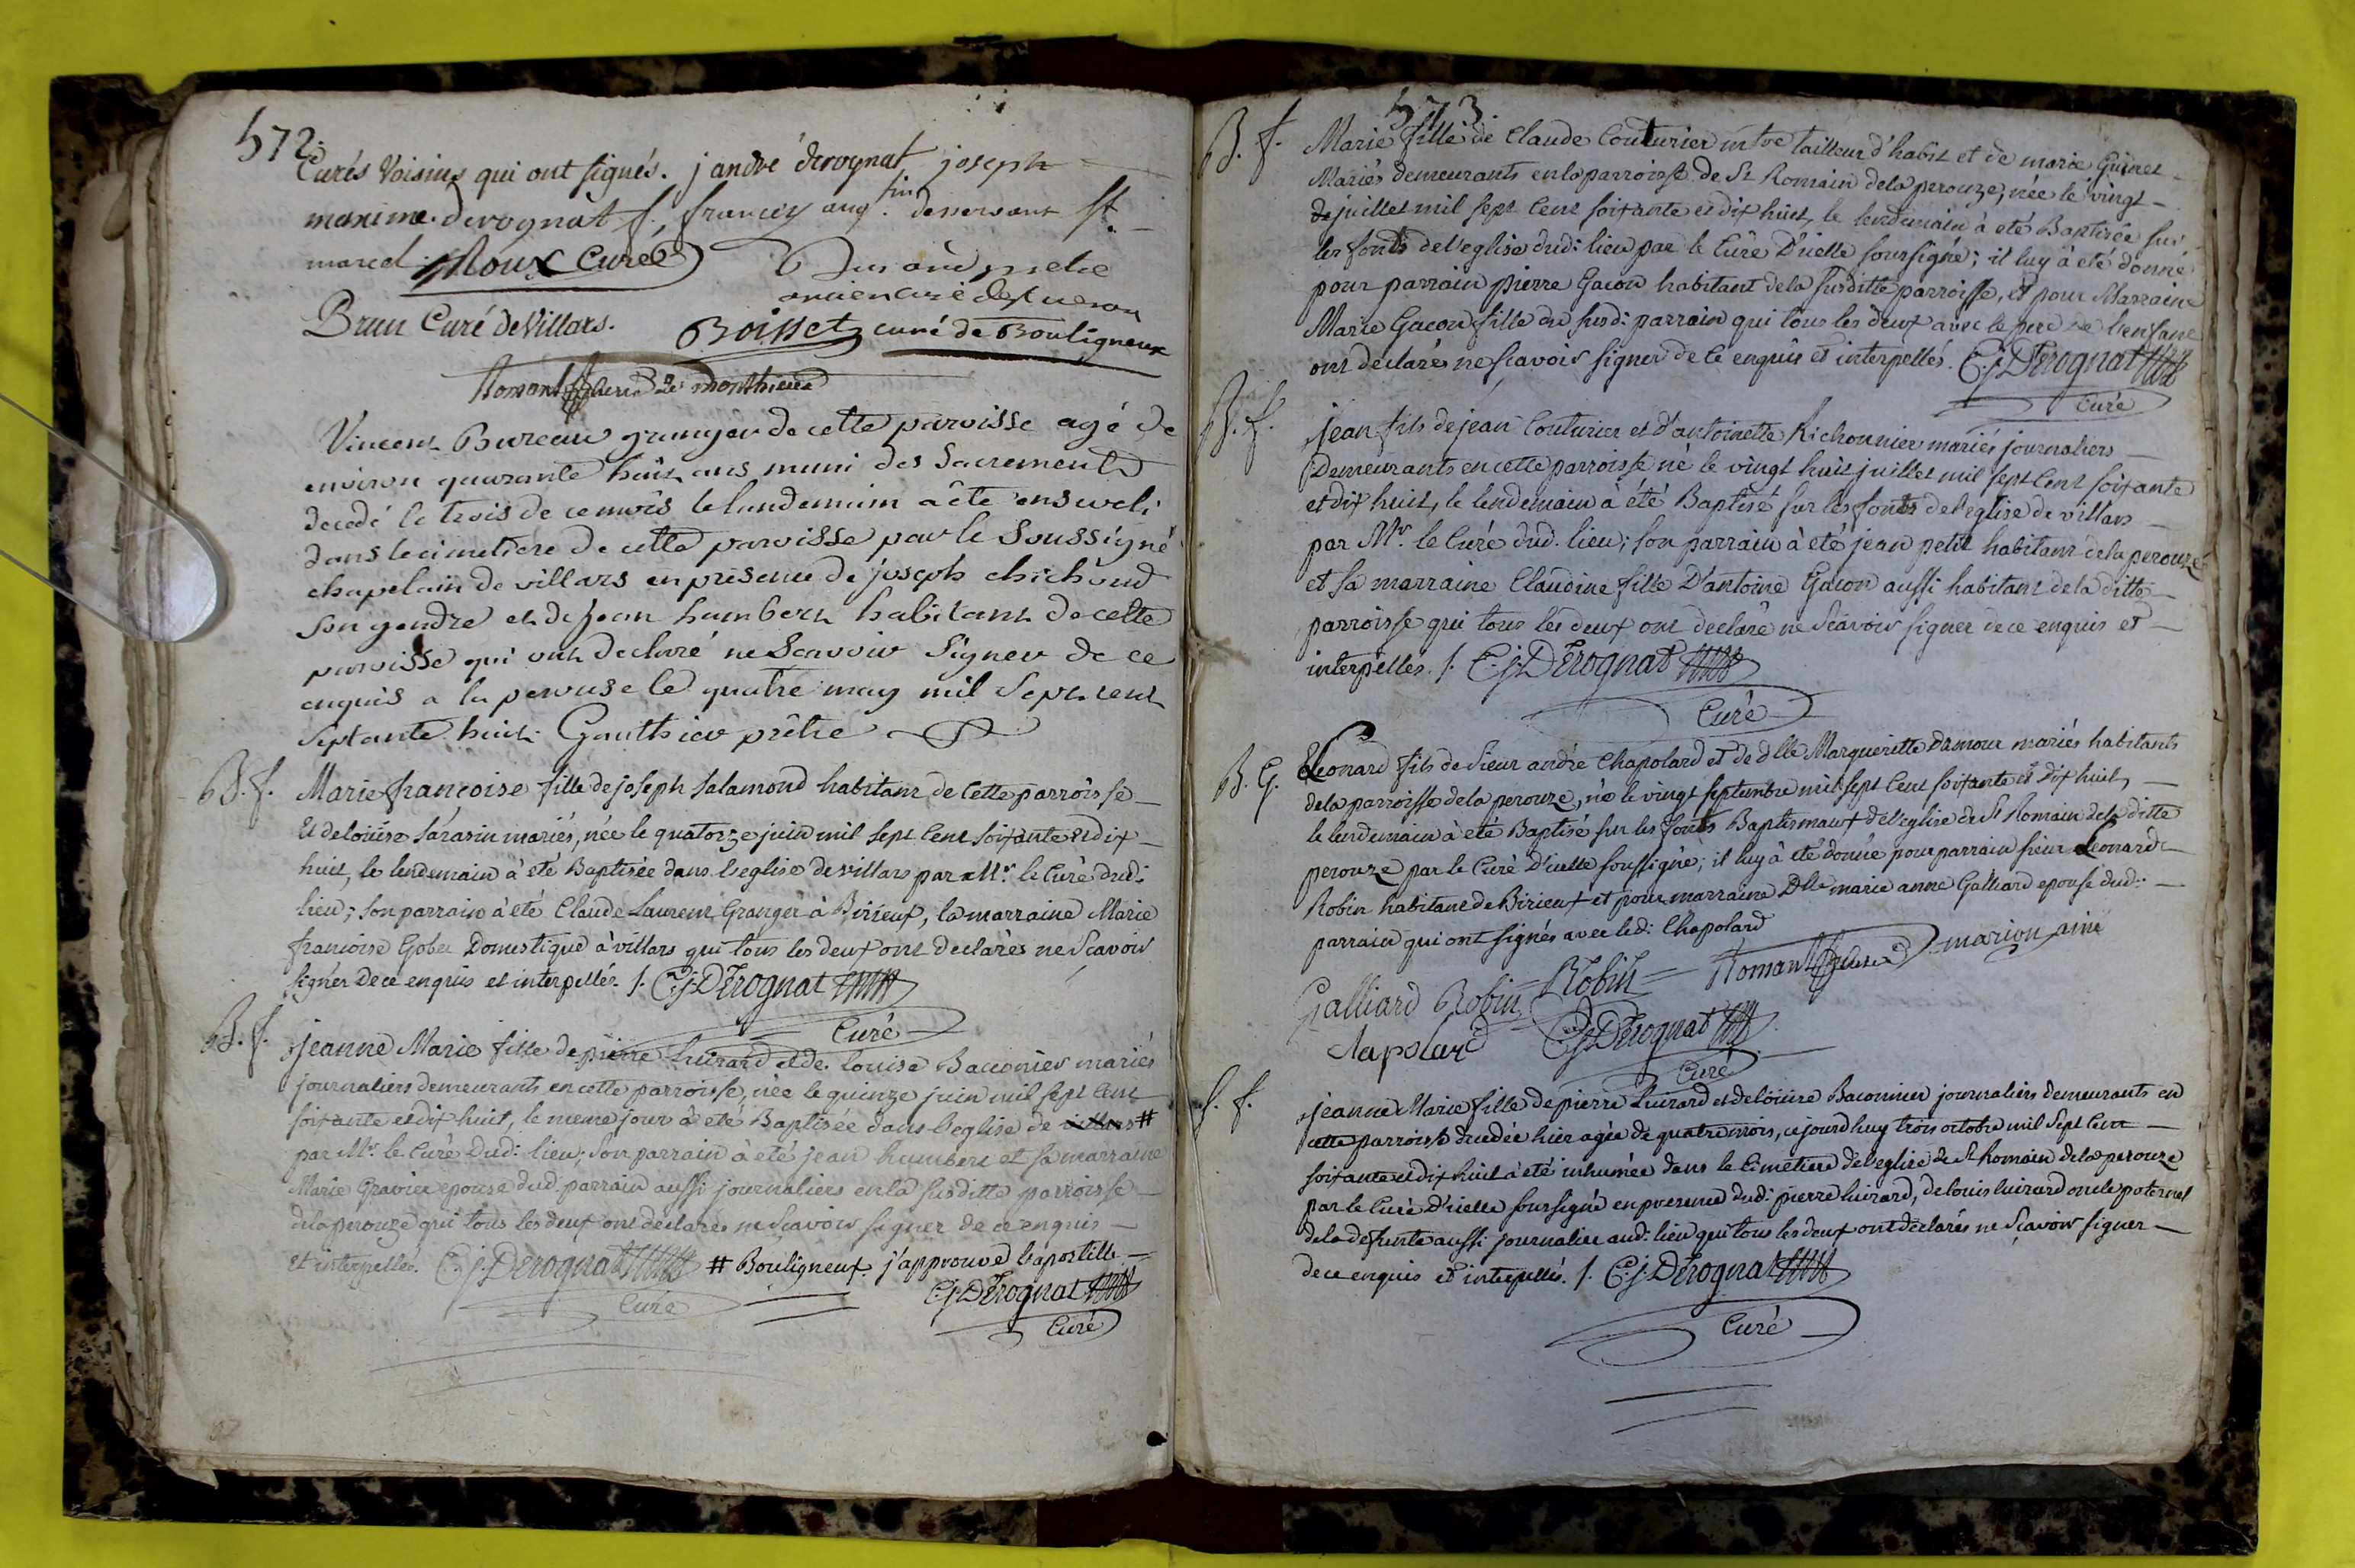 572.
Curés Voisins qui ont signés. j andré derognat joseph
maxime. derognat f, francey aug.tin desservant St.
marcel. Roux Curé Durand prêtre
ancien curé de
Brun Curé de Villars. Boisset curé de Bouligneux
Romans curé de monthieux
Vincent Bureau granger de cette paroisse agé de
environ quarante huit ans muni des Sacrements
decedé le trois de ce mois le landemain a été enseveli
dans le cimetiere de cette paroisse par le Soussigné
chapelain de villars en présence de joseph chichoud
son gendre et de jean humbert habitant de cette
paroisse qui ont declaré ne Scavoir Signer de ce
enquis a la perouse le quatre may mil Sept cent
septante huit. Gauthier prêtre
B. f. Marie françoise fille de joseph Salamond habitant de Cette parroisse
Et de loüise Sarasin mariés, née le quatorze juin mil sept Cent soixante et dix
huit, le lendemain à été Baptisée dans l'eglise de villars par Mr. le Curé dud:
lieu; son parrain à été Claude Laurent Granger à Birieux, la marraine Marie
francoise Gobet Domestique à villars qui tous les deux ont declarés ne Scavoir
signer de ce enquis et interpellés. /. C.j. Derognat
Curé
B. f. jeanne Marie fille de pierre Luirard et de Louise Baconnier mariés
journaliers demeurants en cette parroisse, née le quinze juin mil sept Cent
soixante et dix huit, le meme jour à été Baptisée dans l'eglise de villars #
par Mr. le Curé Dud: lieu; son parrain à été jean humbert et sa marraine
Marie Gravier epouse dud. parrain aussi journaliers en la susditte parroisse
de la perouze qui tous les deux ont declarés ne Scavoir signer de ce enquis
et interpellés. C.j. Derognat # Bouligneux. j'approuve l'apostille
Curé C.j. Derognat
Curé
573.
B. f. Marie fille de Claude Couturier mtre tailleur d'habit et de marie Guinet
Mariés demeurants en la parroisse de St Romain de la perouze, née le vingt
de juillet mil sept Cent soixante et dix huit, le lendemain à été Baptisée sur
les fonts de l'eglise dud: lieu par le Curé D'icelle soussigné; il luy à été donné
pour parrain pierre Gacon habitant de la susditte parroisse, et pour Marraine
Marie Gacon fille du susd: parrain qui tous les deux avec le pere de l'enfant
ont declarés ne Scavoir signer de ce enquis et interpellés. C.j. Derognat
Curé
B. f. jean fils de jean Couturier et d'antoinette Richonnier mariés journaliers
Demeurants en cette parroisse né le vingt huit juillet mil sept Cent soixante
et dix huit, le lendemain à été Baptisé sur les fonts de l'eglise de villars
par Mr. le Curé dud. lieu; son parrain à été jean petit habitant de la perouze
et sa marraine Claudine fille D'antoine Gacon aussi habitant de la ditte
parroisse qui tous les deux ont declaré ne Scavoir signer de ce enquis et
interpellés. /. C.j. Derognat
Curé
B. G. Leonard fils de Sieur andré Chapolard et de dlle Marguerite Damour mariés habitants
de la parroisse de la perouze, né le vingt septembre mil sept Cent soixante et dix huit,
le lendemain à été Baptisé sur les fonts Baptismaux de l'eglise de St Romain de la ditte
perouze par le Curé D'icelle soussigné; il luy à été donné pour parrain sieur Leonard
Robin habitant de Birieux et pour marraine Dlle marie anne Galliard epouse dud:
parrain qui ont signés avec led: Chapolard
Galliard Robin Robin Romans curé marion ainé
Chapolard C.j. Derognat
Curé
S. f. jeanne Marie fille de pierre Luirard et de loüise Baconnier journaliers demeurants en
cette parroisse decedée hier agée de quatre mois, cejourd'huy trois octobre mil Sept Cent
soixante et dix huit à été inhumée dans le Cimetiere de l'eglise de St Romain de la perouze
par le Curé D'icelle soussigné en presence dud: pierre luirard, de louis luirard oncle paternel
de la defunte aussi journalier aud: lieu qui tous les deux ont declarés ne Scavoir signer
de ce enquis et interpellés. /. C.j. Derognat
Curé